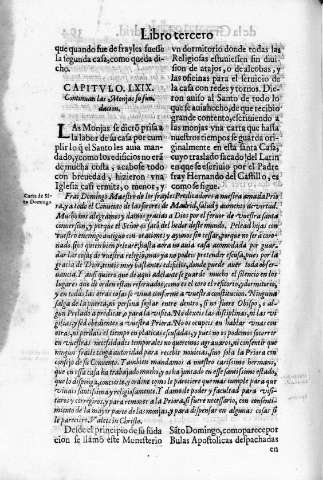 Libro tercero
que quando fue de frayles fuesse
la segunda casa, como queda di-
cho.
CAPITVLO. LXIX.
Continuan las Monjas su fun
dacion.
LAs Monjas se dierō prisa a
la labor de su casa por cum
plir lo q̄ el Santo les auia man
dado, y como los edificios no erā
de mucha costa, acabose todo
con breuedad, hizieron vna
Iglesia casi ermita, o menor, y
vn dormitorio donde todas las
Religiosas estuuiessen sin diui-
sion de atajos, o de alcobas, y
las oficinas para el seruicio de
la casa con redes y tornos. Die-
ron auiso al Santo de todo lo
que se auia hecho, de que recibio
grande contento, escriuiendo a
las monjas vna carta que hasta
nuestros tiempos se guarda ori-
ginalmente en esta santa Casa,
cuyo traslado sacado del Latin
en que se escriuio por el Padre
fray Hernando del Castillo, es
como se sigue.
Carta de Sā-
to Domingo
Fray Domingo Maestro de los frayles Predicadores a nuestra amada Prio
ra, y a todo el Conuento de las sorores de Madrid, salud y aumento de virtud.
Mucho nos alegramos y damos gracias a Dios por el feruor de vuestra santa
conuersion, y porque el Señor os sacò del lodo deste mundo. Pelead hijas con
tra vuestro enemigo antiguo con oraciones y ayunos sin cessar, porque no serà co-
ronado sino quien bien peleare; hasta aora no auia casa acomodada por guar-
dar las cosas de vuestra religion; mas ya no podeys pretender escusa, pues por la
gracia de Dios teneys muy bastante edificio, donde puede auer toda obser-
uancia. Y assi quiero que de aqui adelante se guarde mucho el silencio en los
lugares que de orden estan reseruados, como es el coro el refectorio, y dormitorio,
y en todas las otras cosas se viua conforme a vuestra constitucion. Ninguna
salga de la puerta, ni persona seglar entre dentro, si no fuere Obispo, o al-
gun Prelado a predicar o para la visita. No dexeis las disciplinas, ni las vi-
gilias, y sed obedientes a vuestra Priora. No os empeceis en hablar vnas con
otras, ni perdais el tiempo en platicas escusadas, y pues no os podemos socorrer
en vuestras necessidades temporales no queremos agrauaros, ni consentir que
ningun frayle tenga autoridad para recebir nouicias, sino sola la Priora con
consejo de su Conuento. Tambien mandamos a nuestro carissimo hermano,
que en essa casa ha trabajado mucho, y os ha juntado en esse santissimo estado,
que lo disponga, concierte, y ordene como le pareciere que mas cumple para que
viuais santissima y religiosamente. Y damosle poder y facultad para visi-
taros y corregiros, y para remouer a la Priora, si fuere necessario, con consenti-
miento de la mayor parte de las monjas, y para dispensar en algunas cosas si
le pareciere. Valete in Christo.
Desde el principio de su fūda
cion se llamò este Monesterio
Sāto Domingo, como parece por
Bulas Apostolicas despachadas
en